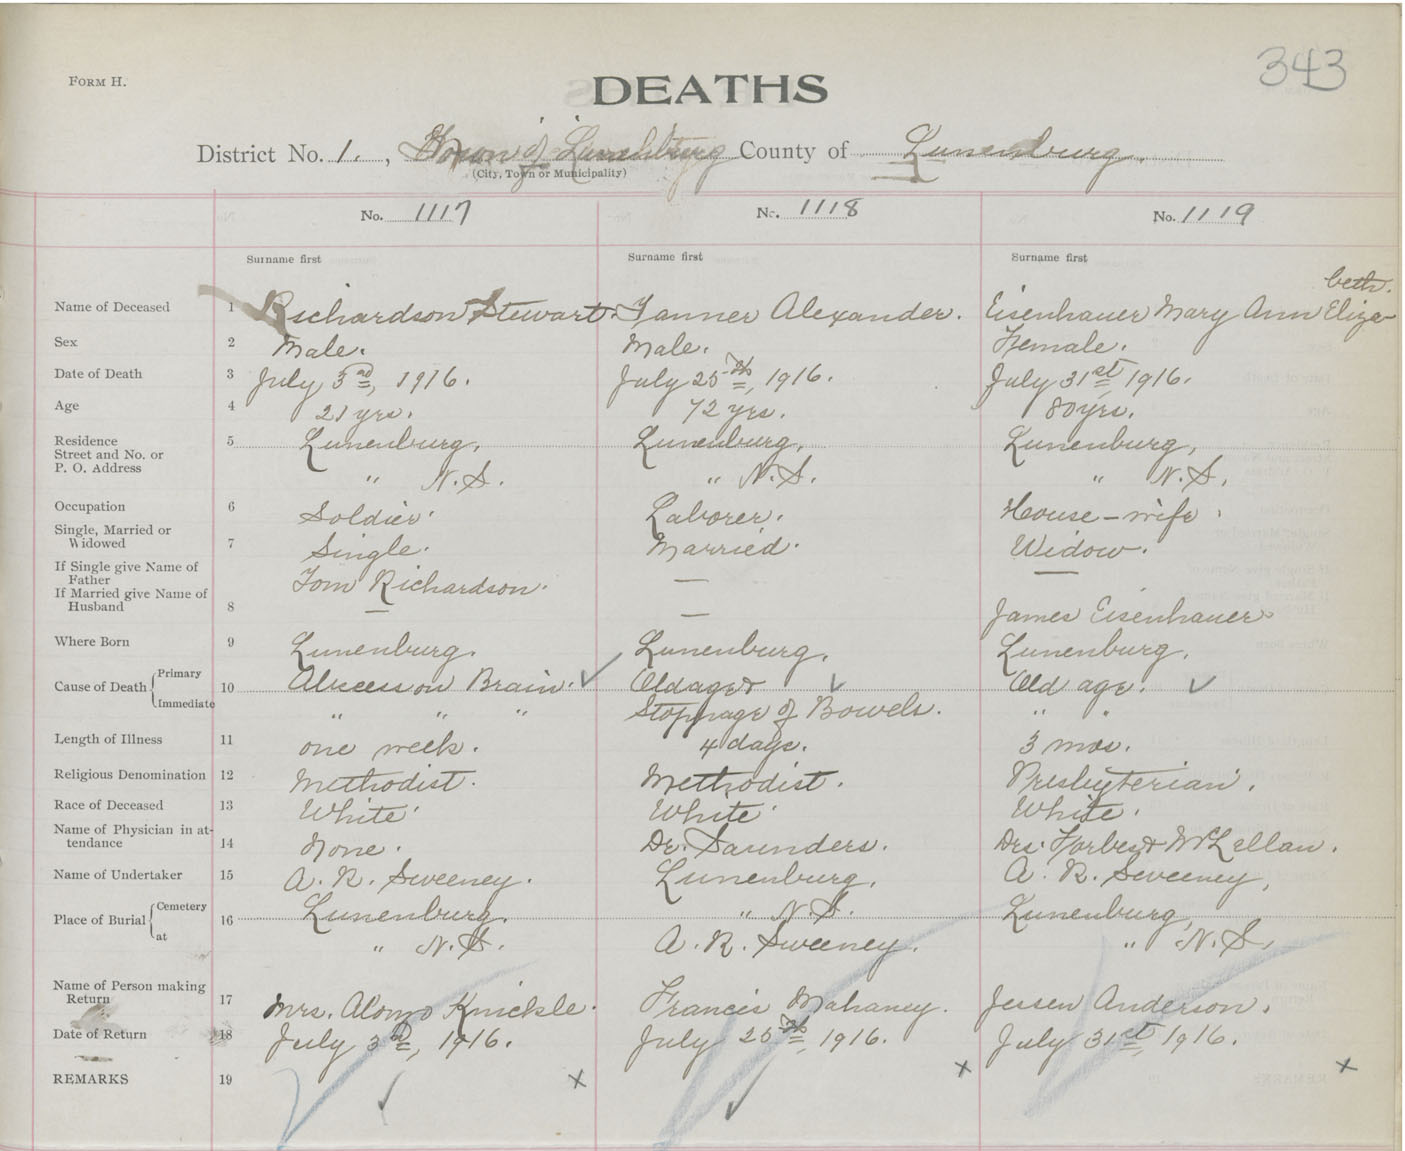 343
FORM H.
DEATHS
District No. 1., Town of Lunenburg County of Lunenburg.
(City, Town or Municipality)
No. 1117 No. 1118 No. 1119
Surname first Surname first Surname first
beth.
Name of Deceased 1 Richardson Stewart. Tanner Alexander. Eisenhauer Mary Ann Eliza-
Sex 2 Male. Male. Female.
Date of Death 3 July 3rd, 1916. July 25th, 1916. July 31st, 1916.
Age 4 21 yrs. 72 yrs. 80 yrs.
Residence 5 Lunenburg, Lunenburg, Lunenburg,
Street and No. or
P. O. Address " N.S. " N.S. " N.S.
Occupation 6 Soldier. Laborer. House-wife.
Single, Married or
Widowed 7 Single. Married. Widow.
If Single give Name of
Father Tom Richardson. — —
If Married give Name of
Husband 8 — — James Eisenhauer
Where Born 9 Lunenburg. Lunenburg. Lunenburg.
Primary
Cause of Death 10 Abcess on Brain. ✓ Old age & ✓ Old age. ✓
Immediate " " " Stoppage of Bowels. " "
Length of Illness 11 one week. 4 days. 3 mos.
Religious Denomination 12 Methodist. Methodist. Presbyterian.
Race of Deceased 13 White. White. White.
Name of Physician in at-
tendance 14 None. Dr. Saunders. Drs. Forbes & McLellan.
Name of Undertaker 15 A. R. Sweeney. Lunenburg, A. R. Sweeney,
Cemetery
Place of Burial 16 Lunenburg. " N.S. Lunenburg,
at " N.S. A. R. Sweeney. " N.S.
Name of Person making
Return 17 Mrs. Alonzo Knickle. Francis Mahaney. Jessen Anderson.
Date of Return 18 July 3rd, 1916. July 25th, 1916. July 31st, 1916.
REMARKS 19 x x x